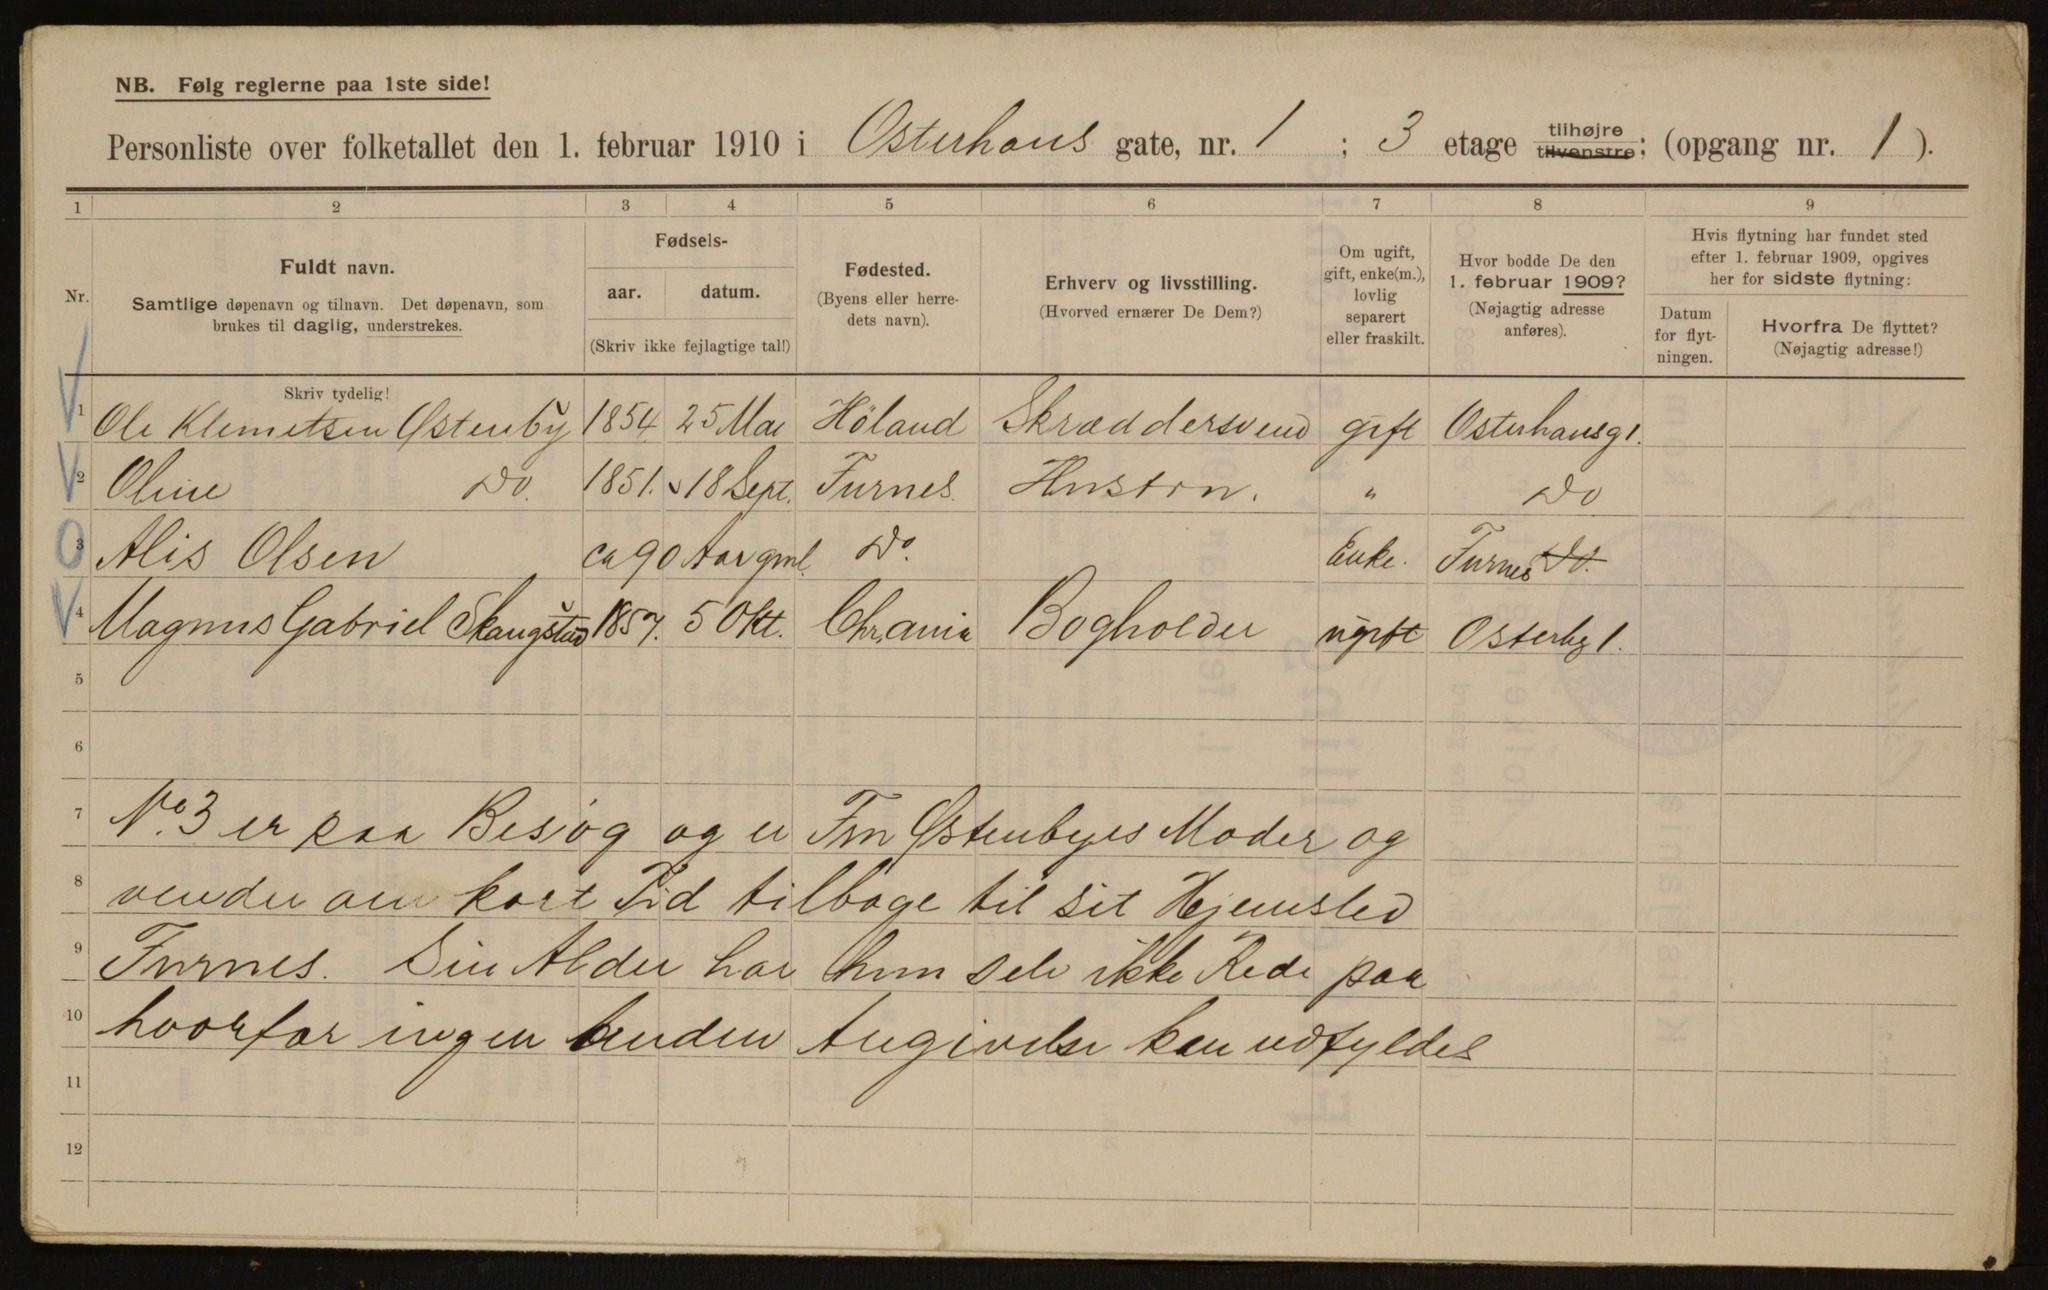 NB. Følg reglerne paa 1ste side!
Personliste over folketallet den 1. februar 1910 i Osterhaus gate, nr. 1 ; 3 etage tilhøjre tilvenstre; (opgang nr. 1 ).
1 2 3 4 5 6 7 8 9
Nr.
Fuldt navn.
Samtlige døpenavn og tilnavn. Det døpenavn, som
brukes til daglig, understrekes.
Skriv tydelig!
Fødsels-
aar. datum.
(Skriv ikke fejlagtige tal!)
Fødested.
(Byens eller herre-
dets navn).
Erhverv og livsstilling.
(Hvorved ernærer De Dem?)
Om ugift,
gift, enke(m.),
lovlig
separert
eller fraskilt.
Hvor bodde De den
1. februar 1909?
(Nøjagtig adresse
anføres).
Hvis flytning har fundet sted
efter 1. februar 1909, opgives
her for sidste flytning:
Datum
for flyt-
ningen.
Hvorfra De flyttet?
(Nøjagtig adresse!)
1 Ole Klemetsen Østenby 1854 25 Mai Höland Skræddersvend gift Osterhausg 1.
2 Oline Do. 1851. 18 Sept. Furnes. Hustru. " Do
3 Alis Olsen ca 90 Aar gml. Do. Enke. Furnes Do.
4 Magnus Gabriel Skaugstad 1857. 5 Okt. Chr.ania Bogholder ugift Osterhg 1.
5
6
7 No. 3 er paa Besøg og er Fru Østenbyes Moder og
8 vender om kort Tid tilbage til sit Hjemsted
9 Furnes. Sin Alder har hun selv ikke Rede paa
10 hvorfor ingen anden Angivelse kan udfyldes
11
12